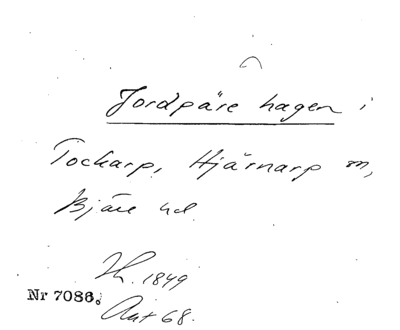 Jordpäre hagen i
Tockarp, Hjärnarp m,
Bjäre hd.
1849
Nr 7086.
Ant 68.